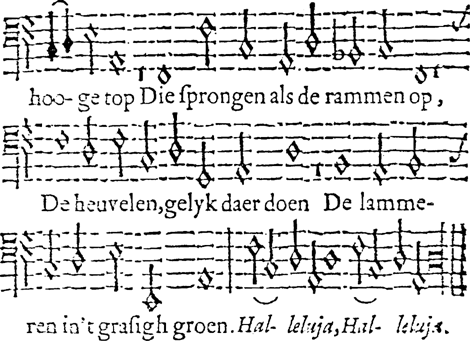 hoo- ge top Die ſprongen als de rammen op,
De heuvelen, gelyk daer doen De lamme-
ren in't graſigh groen. Hal- leluja, Hal- leluja.